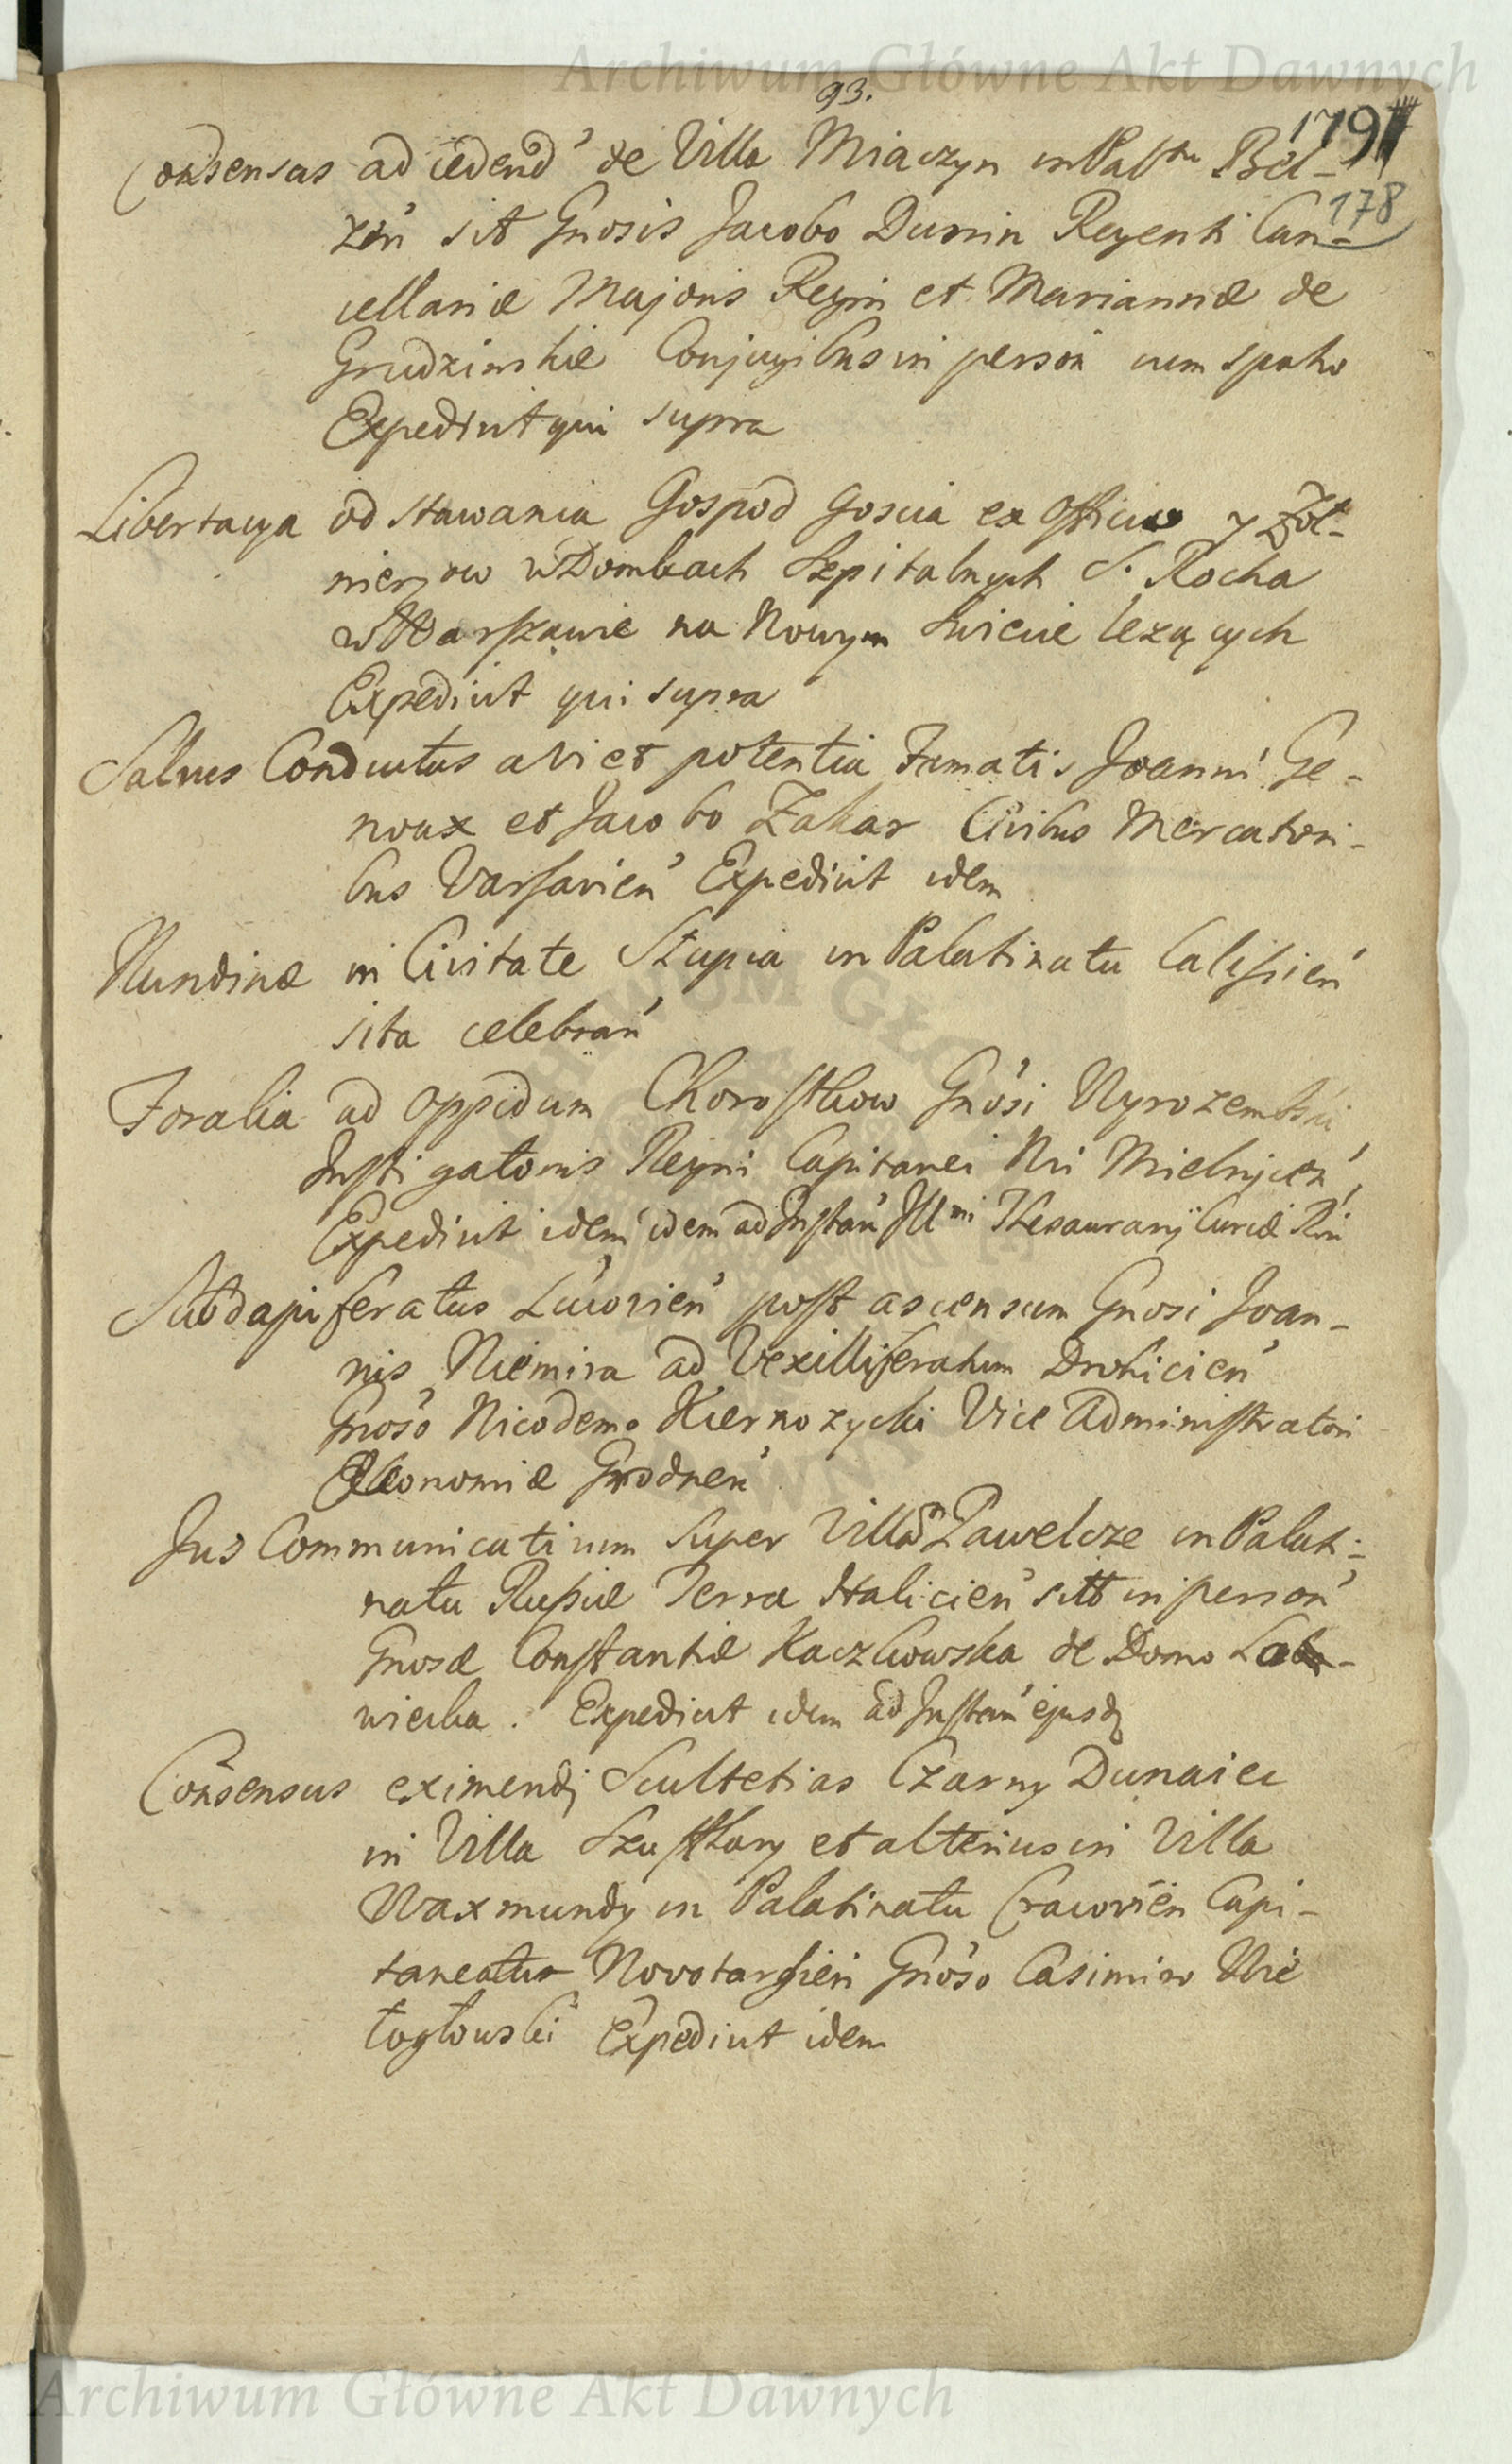 Archiwum Główne Akt Dawnych
93.
179
178
Consensus ad cedend' de Villa Miaczyn in Palttu Bel-
zen' sit Gnosis Jacobo Dunin Regenti Can-
cellariæ Majoris Regni et Mariannæ de
Grudzinskie Conjugibus in person cum spatio
Expedivit qui supra
Libertacya od stawania Gospod Goscia ex Officio y Zoł-
nierzow w Dombach Szpitalnych S. Rocha
w Warszawie na Nowym Swiecie lezących
Expedivit qui supra
Salvus Conductus a vi et potentia Famatis Joanni Ge-
noux et Jacobo Zakar Civibus Mercatori-
bus Varsavien' Expedivit idem
Nundinæ in Civitate Słupia in Palatinatu Calissien'
sita celebran'
Foralia ad Oppidum Chorostkow Gnosi Wyrozembski
Instigatoris Regni Capitanei Nri Mielnicen'
Expedivit idem idem ad Instan' Illmi Thesaurarij Curiæ Rni
Subdapiferatus Lucovien' post ascensum Gnosi Joan-
nis Niemira ad Vexilliferatum Drohicien'
Gnoso Nicodemo Kiernozycki Vice Administratori
Œconomiæ Grodnen'
Jus Communicativum super Villam Pawelcze in Palati-
natu Russiæ Terra Halicien' sitt in person'
Gnosæ Constantiæ Kaczkowska de Domo
wiecka. Expedivit idem ad Instan' ejusd
Consensus eximendj Scultetias Czarny Dunaiec
in Villa Szaftlary et alterius in Villa
Waxmundy in Palatinatu Cracovien Capi-
taneatus Novotargien Gnoso Casimiro Wie
logłowski Expedivit idem
Archiwum Główne Akt Dawnych